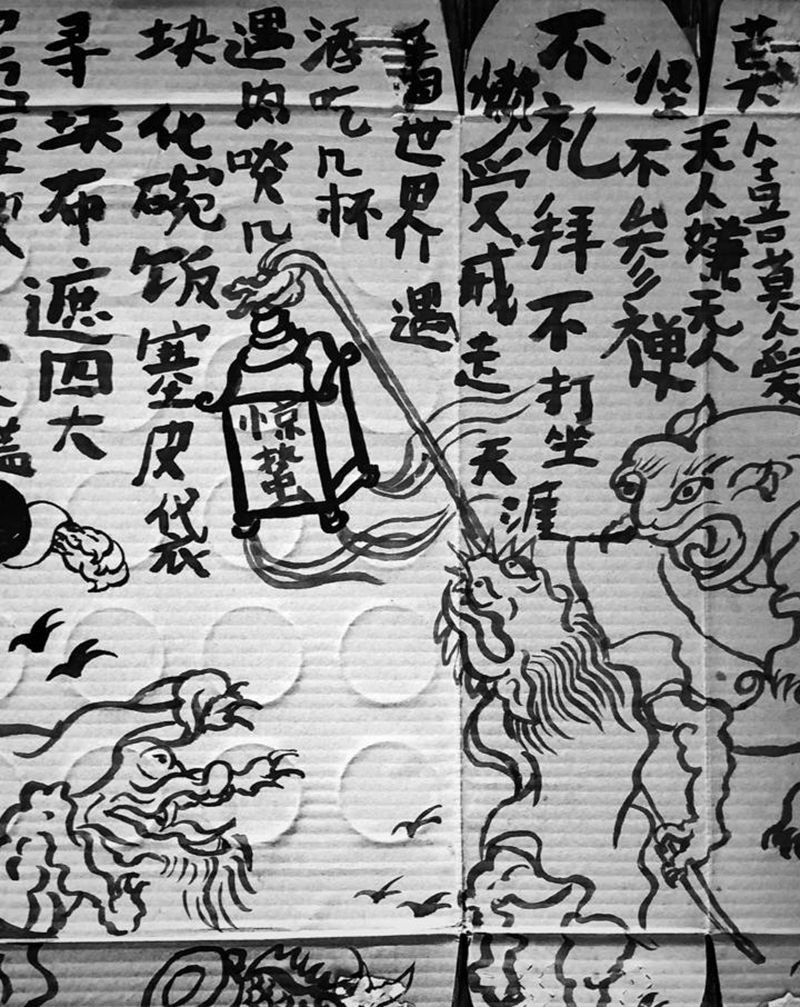 莫人喜莫人爱
无人嫌无人
怪不参禅
不礼拜不打坐
懒受戒走天涯
世界遇
酒吃几杯
遇肉啖几
块化碗饭塞皮袋
寻块布遮四大
惊蛰